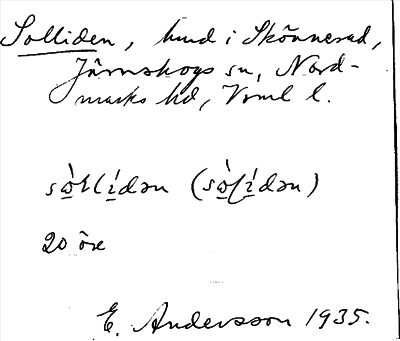 Solliden, hmd i Skönnerud,
Järnskogs sn, Nord-
marks hd, Vrml l.
sò̱l(í̱dən (sò̱lí̱dən)
20 öre
E. Andersson 1935.